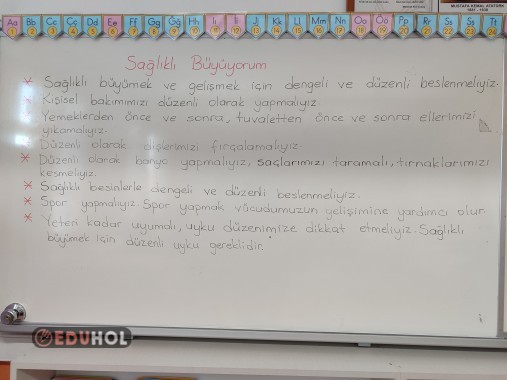 Aa Bb Cc Çç Dd Ee Ff Gg Ğğ Hh Iı İi Jj Kk Ll Mm Nn Oo Öö Pp Rr Ss Şş Tt
1 2 3 4 5 6 7 8 9 10 11 12 13 14 15 16 17 18 19 20 21 22 23 24
MUSTAFA KEMAL ATATÜRK
1881 - 1938
Sağlıklı Büyüyorum
* Sağlıklı büyümek ve gelişmek için dengeli ve düzenli beslenmeliyiz.
* Kişisel bakımımızı düzenli olarak yapmalıyız.
* Yemeklerden önce ve sonra, tuvaletten önce ve sonra ellerimizi
yıkamalıyız.
* Düzenli olarak dişlerimizi fırçalamalıyız.
* Düzenli olarak banyo yapmalıyız, saçlarımızı taramalı, tırnaklarımızı
kesmeliyiz.
* Sağlıklı besinlerle dengeli ve düzenli beslenmeliyiz.
* Spor yapmalıyız. Spor yapmak vücudumuzun gelişimine yardımcı olur
* Yeteri kadar uyumalı, uyku düzenimize dikkat etmeliyiz. Sağlıklı
büyümek için düzenli uyku gereklidir.
EDUHOL